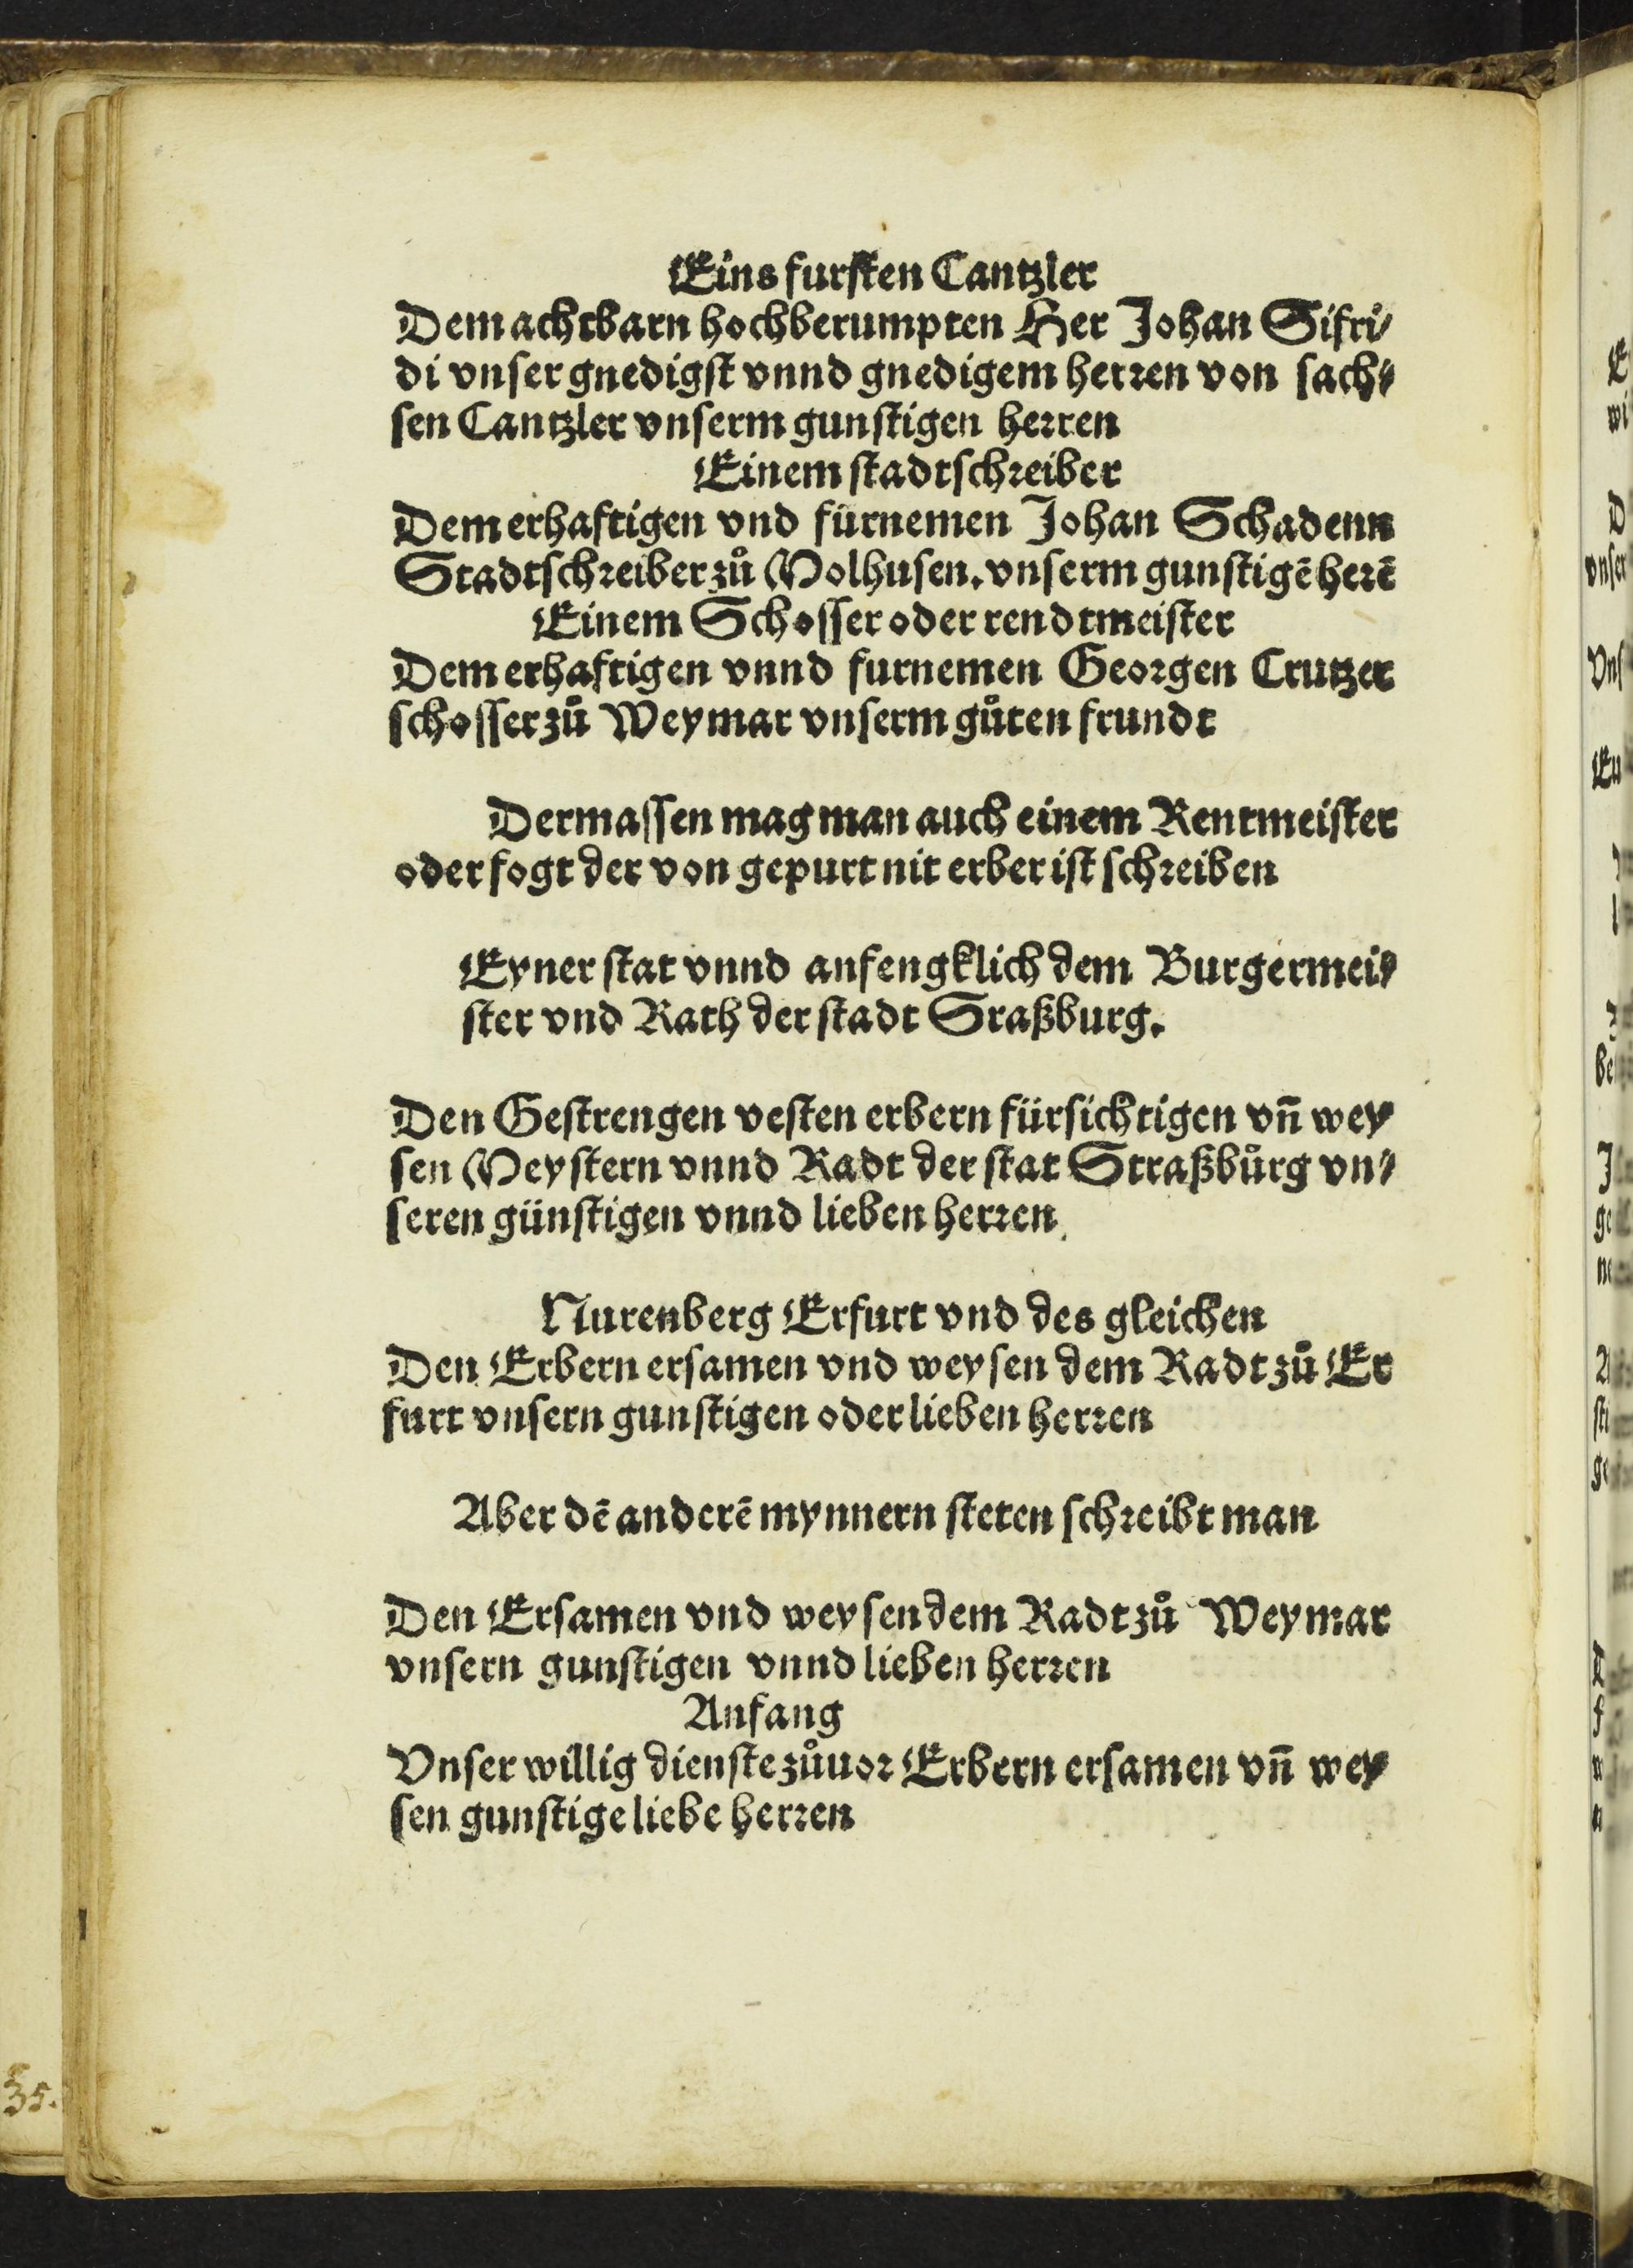 Eins fursten Cantzler
Dem achtbarn hochberumpten Her Johan Sifri⸗
di vnser gnedigst vnnd gnedigem herren von sach⸗
sen Cantzler vnserm gunstigen herren
Einem stadtschreiber
Dem erhaftigen vnd fürnemen Johan Schadenn
Stadtschreiber zů Molhusen. vnserm gunstigē herē
Einem Schosser oder rendtmeister
Dem erhaftigen vnnd furnemen Georgen Crutzer
schosser zů Weymar vnserm gůten frundt
Dermassen mag man auch einem Rentmeister
oder fogt der von gepurt nit erber ist schreiben
Eyner stat vnnd anfengklich dem Burgermei⸗
ster vnd Rath der stadt Sraßburg.
Den Gestrengen vesten erbern fürsichtigen vn̄ wey
sen Meystern vnnd Radt der stat Straßbůrg vn⸗
seren günstigen vnnd lieben herren.
Nurenberg Erfurt vnd des gleichen
Den Erbern ersamen vnd weysen dem Radt zů Er
furt vnsern gunstigen oder lieben herren
Aber dē anderē mynnern steten schreibt man
Den Ersamen vnd weysen dem Radt zů Weymar
vnsern gunstigen vnnd lieben herren
Anfang
Vnser willig dienste zůuor Erbern ersamen vn̄ wey
sen gunstige liebe herren
35.